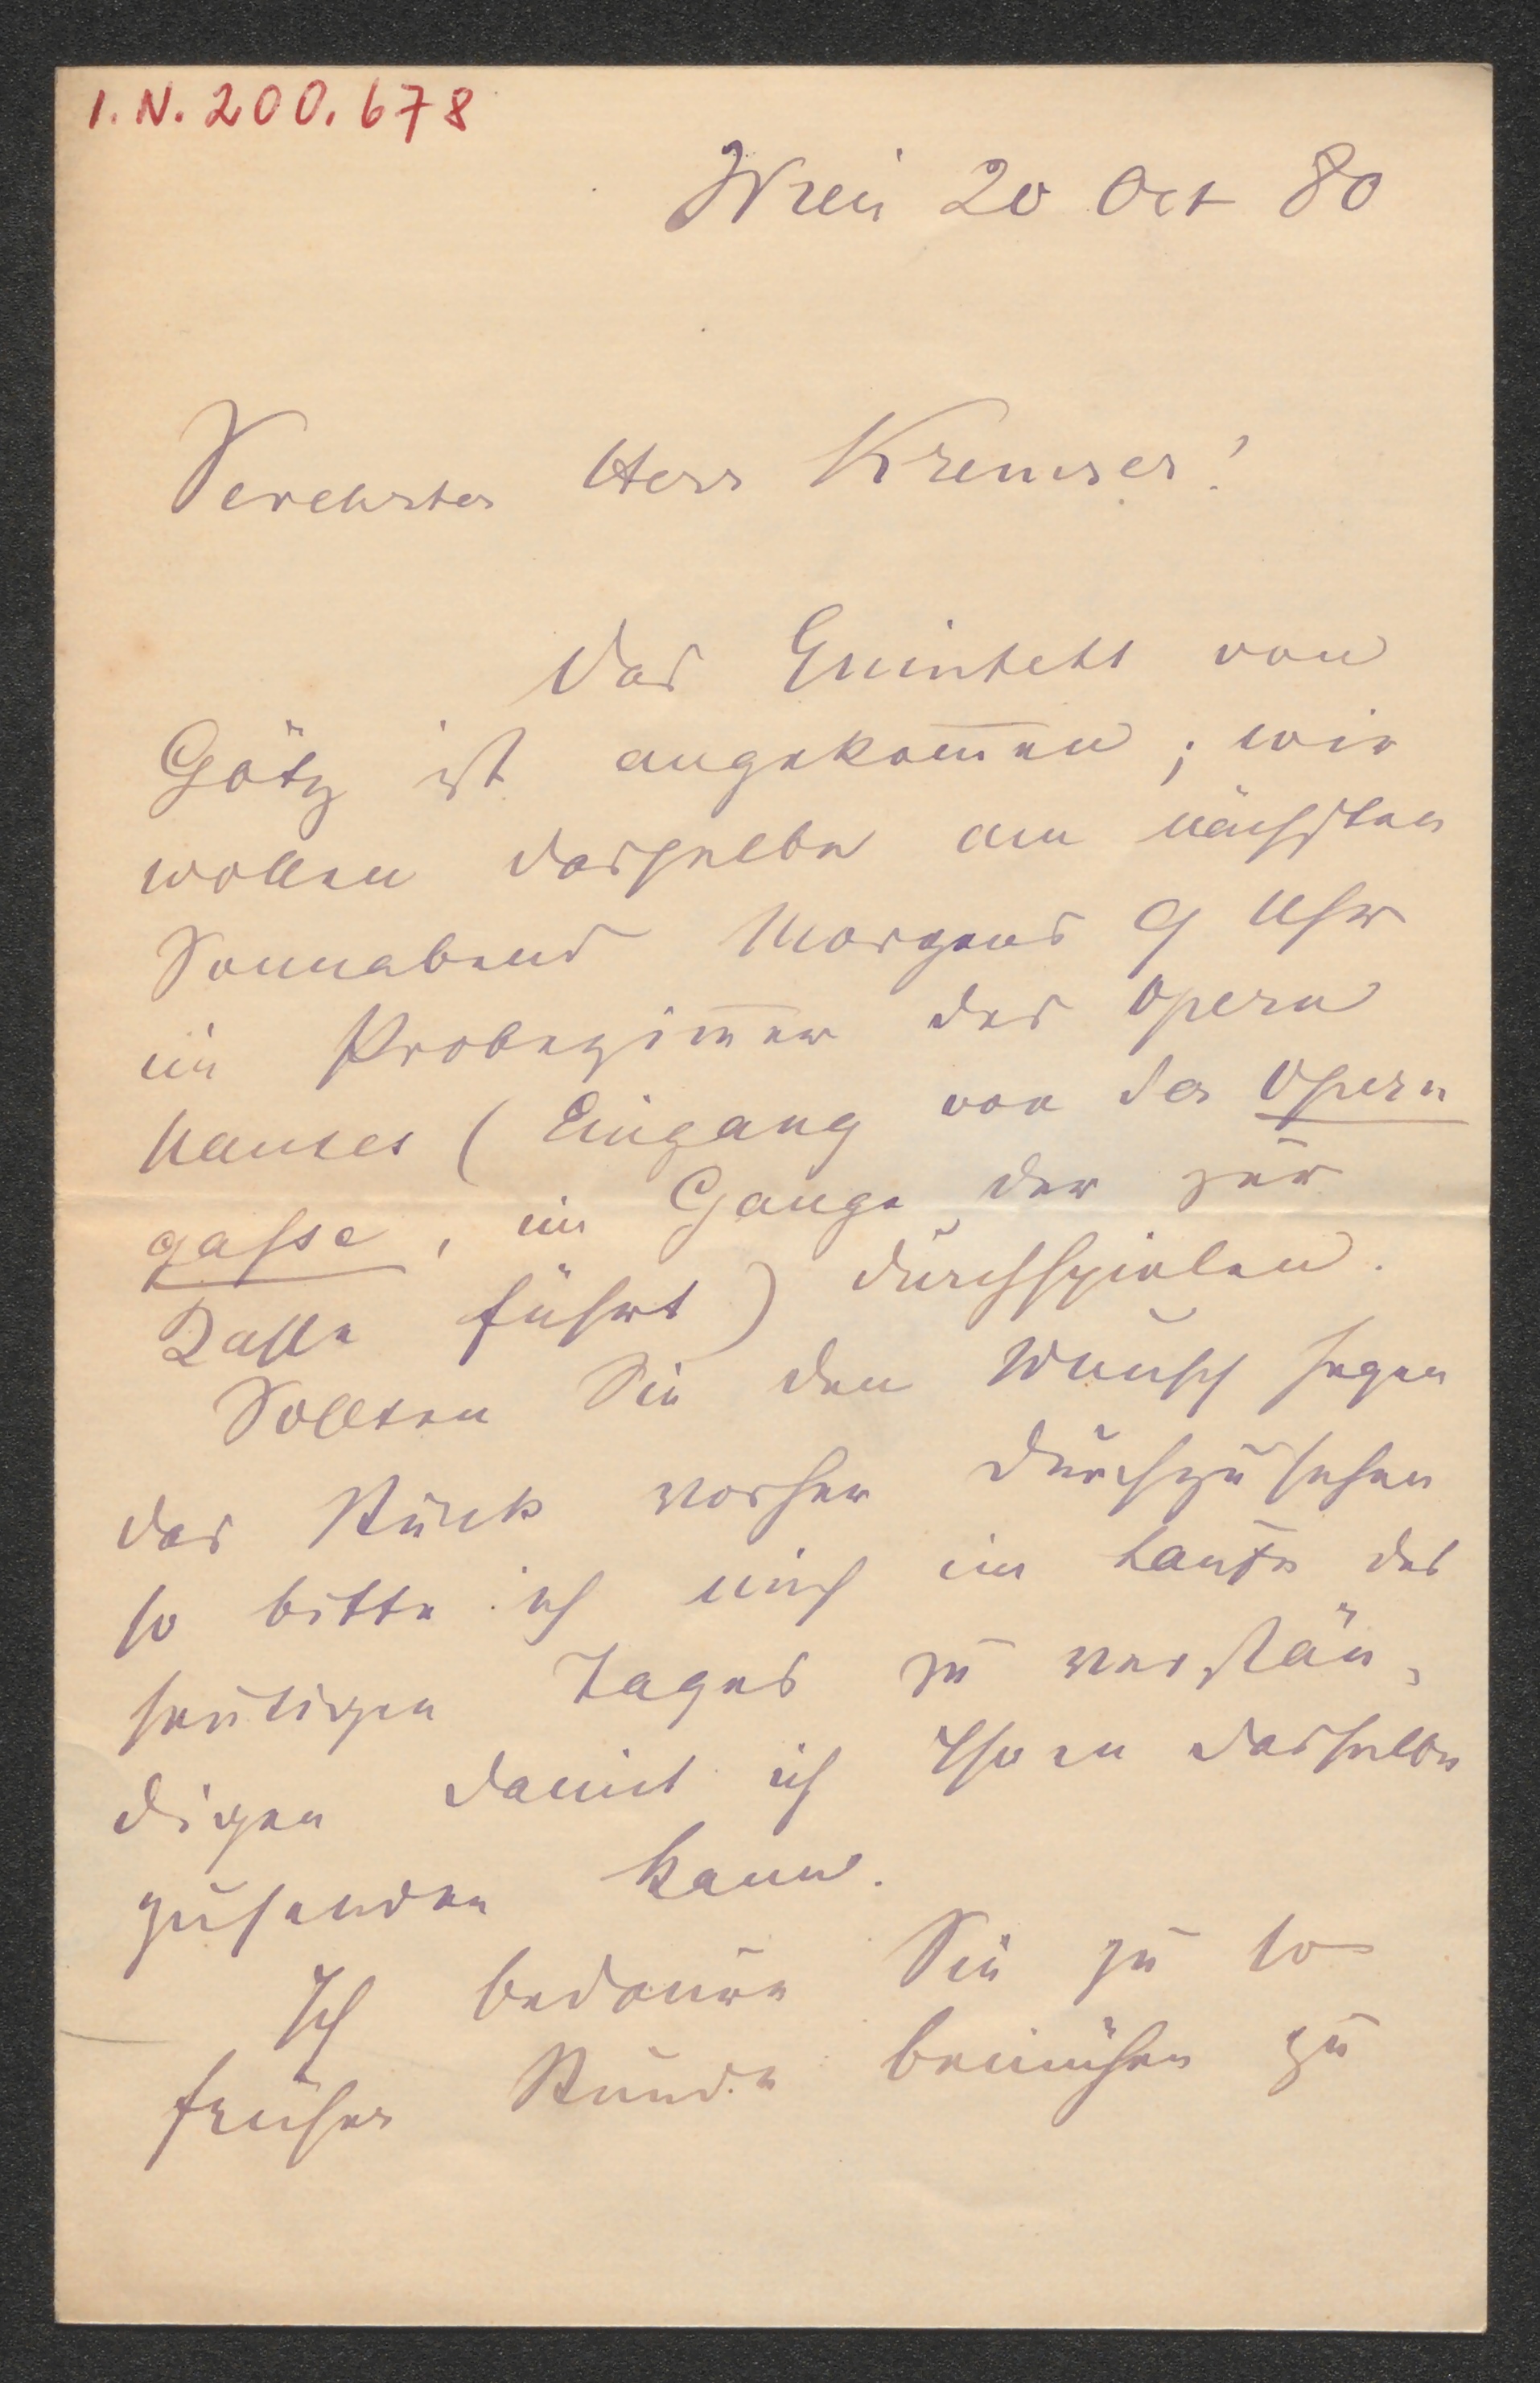 I.N. 200.678
Wien 20 Oct 80
Verehrter Herr Kremser!
Das Quintett von
Götz ist angekom̅en; wir
wollen dasselbe am nächsten
Sonnabend Morgens 9 Uhr
im Probezim̅er des Opern
hauses (Eingang von der Opern
gasse, im Gange der zur
Kassa führt) durchspielen.
Sollten Sie den Wunsch hegen
das Stück vorher durchzusehen
so bitte ich mich im Laufe des
heutigen Tages zu verstän-
digen damit ich Ihnen dasselbe
zusenden kann.
Ich bedaure Sie zu so
früher Stunde bemühen zu